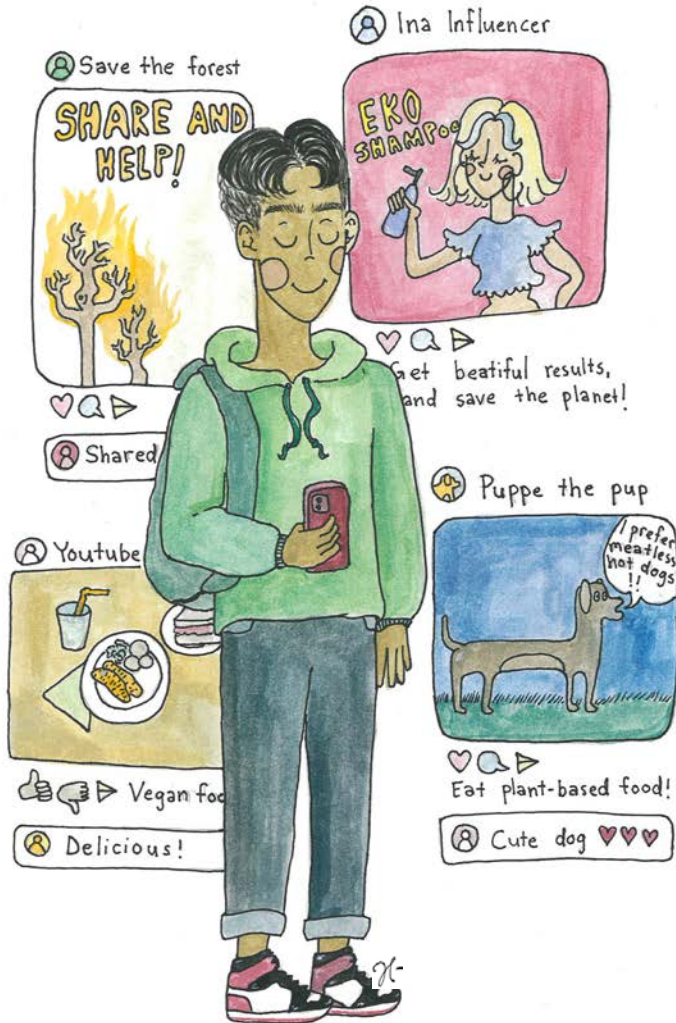 Save the forest
SHARE AND
HELP!
Shared
Ina Influencer
EKO
SHAMPOO
Get beatiful results,
and save the planet!
Youtube
Vegan foo
Delicious!
Puppe the pup
I prefer
meatless
hot dogs
!!
Eat plant-based food!
Cute dog